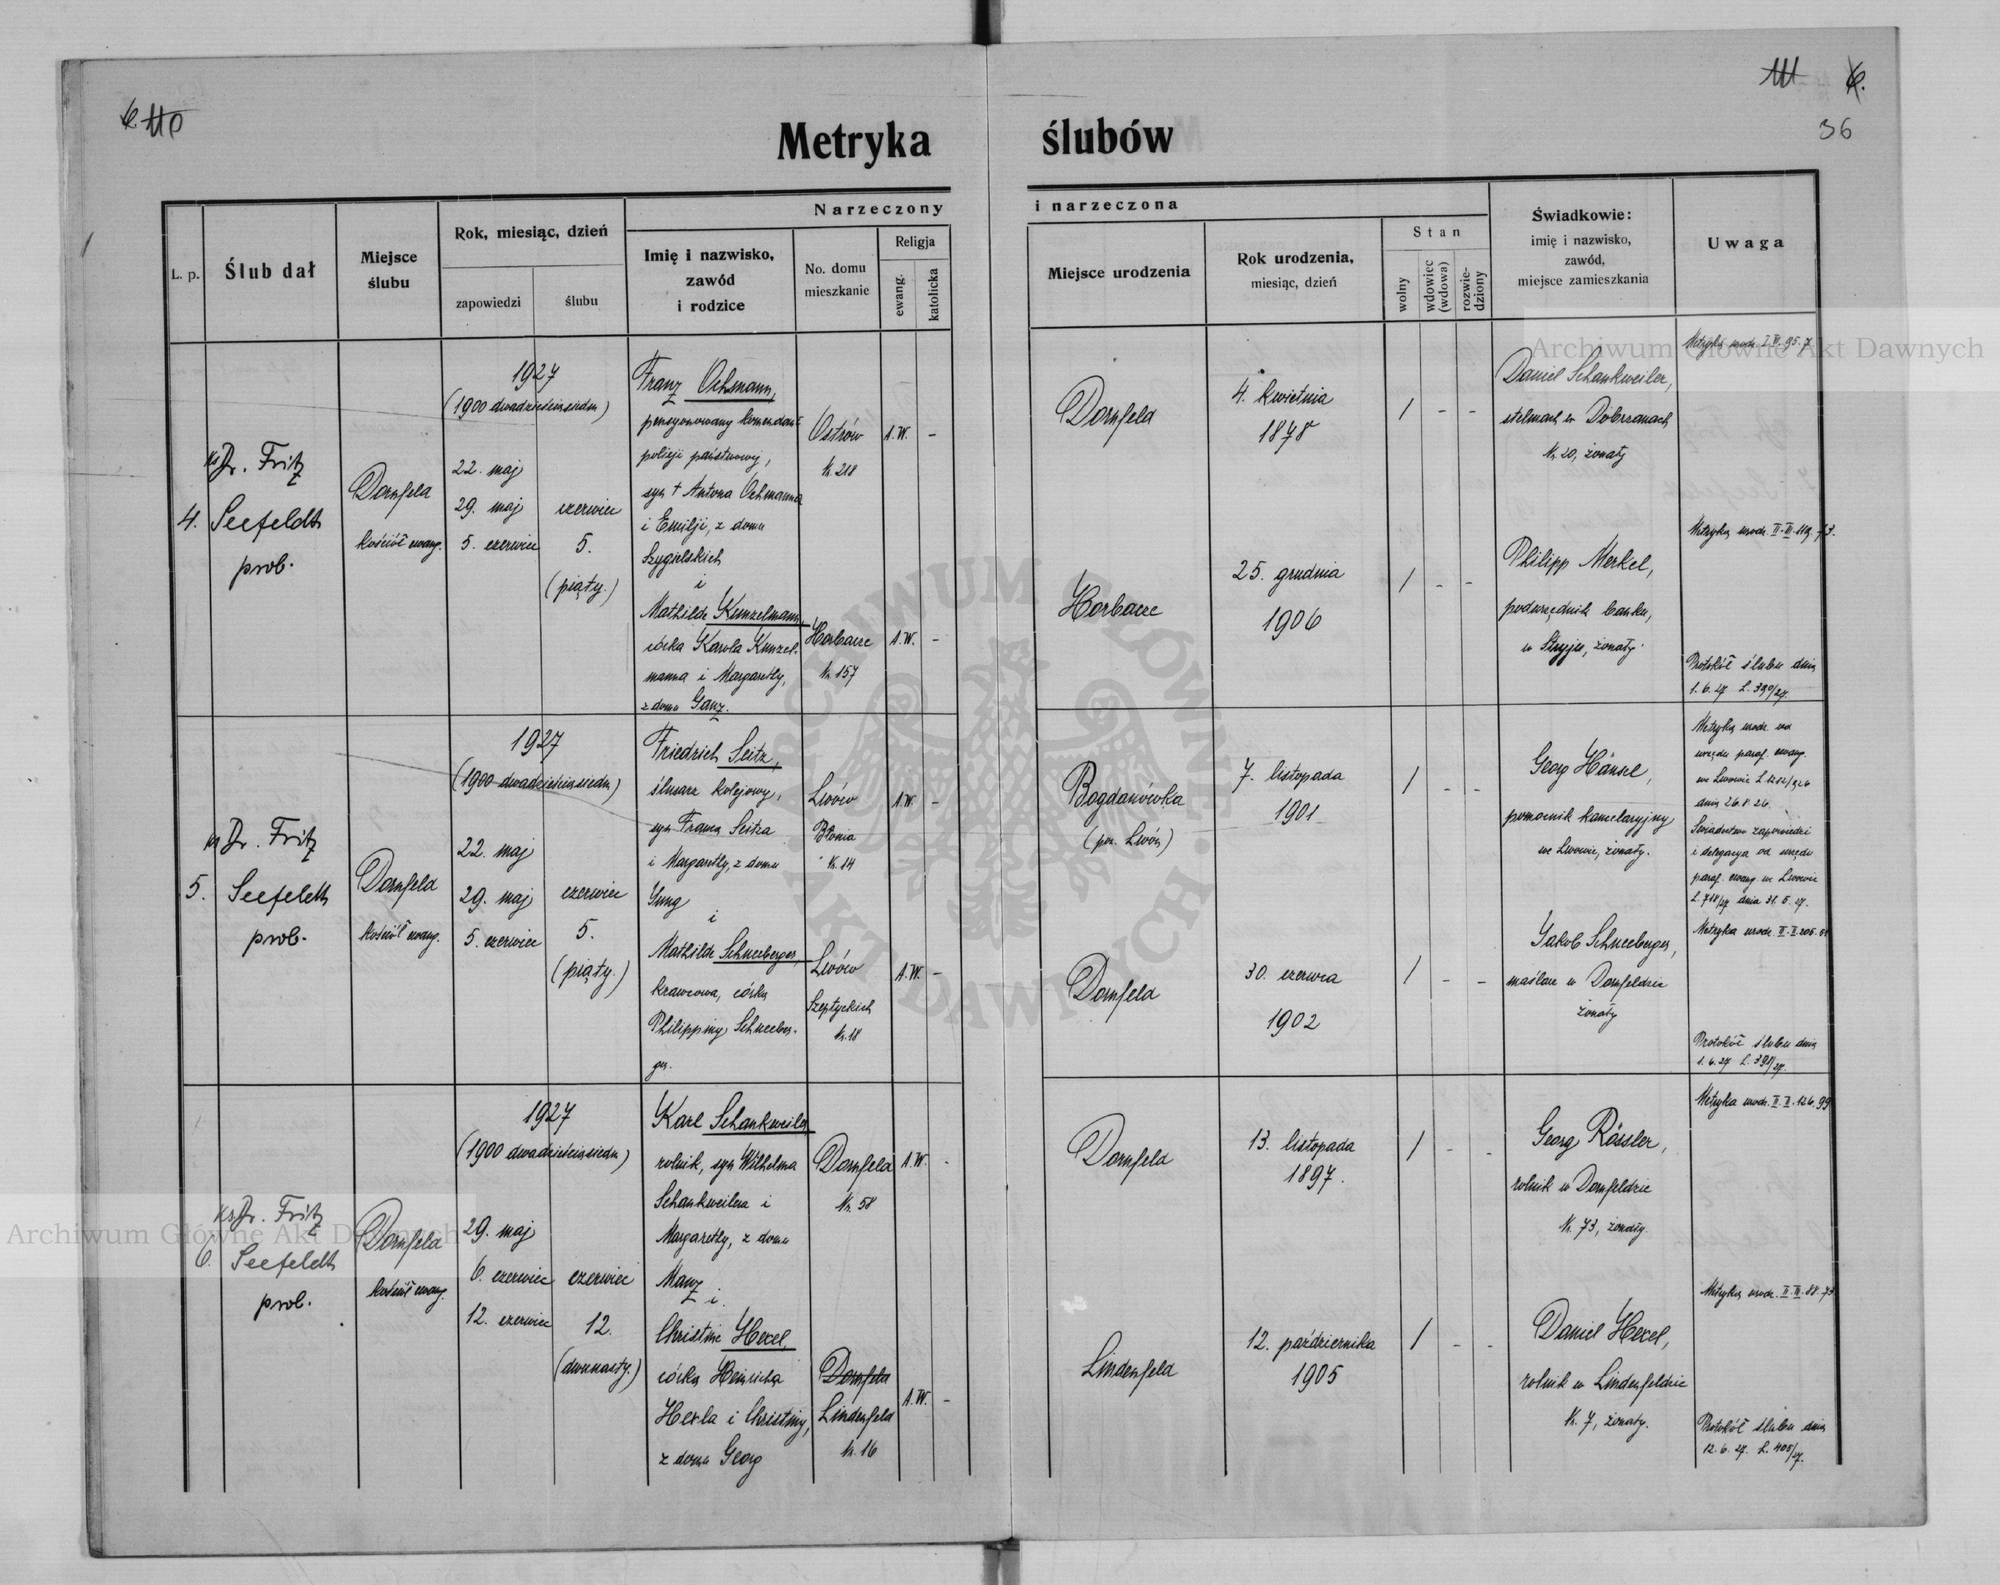 6. 110
111 6.
36
Metryka ślubów
Narzeczony i narzeczona
L. p.
Ślub dał
Miejsce
ślubu
Rok, miesiąc, dzień
zapowiedzi
ślubu
Imię i nazwisko,
zawód
i rodzice
No. domu
mieszkanie
Religja
ewang.
katolicka
Miejsce urodzenia
Rok urodzenia,
miesiąc, dzień
Stan
wolny
wdowiec
(wdowa)
rozwie-
dziony
Świadkowie:
imię i nazwisko,
zawód,
miejsce zamieszkania
Uwaga
4.
ks Dr. Fritz
Seefeldt
prob.
Dornfeld
kościół ewang.
1927
(1900 dwadzieściasiedm)
22. maj
29. maj
5. czerwiec
czerwiec
5.
(piąty.)
Franz Ochmann,
pensyonowany komendant
policji państwowej,
syn + Antona Ochmanna
i Emilji, z domu
Szygielskich
i
Mathilde Kunzelmann,
córka Karola Kunzel-
manna i Margarethy,
z domu Ganz.
Ostrów
Nr. 218
A.W. -
Horbacze
Nr. 157
A.W. -
Dornfeld
4. kwietnia
1878
/ - -
Horbacze
25. grudnia
1906
/ - -
Daniel Schankweiler,
stelmach w Dobrzanach
Nr. 20, żonaty
Philipp Merkel,
podurzędnik banku,
w Stryju, żonaty.
Metryka urodz. I. 95. 7
Metryka urodz. II. III. 119. 73.
Protokół ślubu dnia
1. 6. 27 L. 390/27.
5.
ks Dr. Fritz
Seefeldt
prob.
Dornfeld
kościół ewang.
1927
(1900 dwadzieściasiedm)
22. maj
29. maj
5. czerwiec
czerwiec
5.
(piąty.)
Friedrich Seitz,
ślusarz kolejowy,
syn Franza Seitza
i Margarethy, z domu
Jung
i
Mathilde Schneeberger,
krawcowa, córka
Philippiny Schneeber-
ger.
Lwów
Błonia
Nr. 14
A.W. -
Lwów
Szeptyckich
Nr. 18
A.W. -
Bogdanówka
(pow. Lwów)
7. listopada
1901
/ - -
Dornfeld
30. czerwca
1902
/ - -
Georg Hänsel,
pomocnik kancelaryjny
we Lwowie, żonaty.
Jakob Schneeberger,
maślarz w Dornfeldzie
żonaty
Metryka urodz. od
urzędu paraf. ewang.
we Lwowie L 1212/926
dnia 26. 8. 26.
Świadectwo zapowiedzi
i delegacya od urzędu
paraf. ewang. we Lwowie
L. 718/27 dnia 31. 5. 27.
Metryka urodz. II. II. 205.
Protokół ślubu dnia
1. 6. 27 L. 391/27.
6.
ks Dr. Fritz
Seefeldt
prob.
Dornfeld
kościół ewang.
1927
(1900 dwadzieściasiedm)
29. maj
6. czerwiec
12. czerwiec
czerwiec
12.
(dwunasty.)
Karl Schankweiler
rolnik, syn Wilhelma
Schankweilera i
Margarethy, z domu
Manz
i
Christine Hexel,
córka Heinricha
Hexla i Christiny,
z domu Georg
Dornfeld
Nr. 58
A.W. -
Dornfeld
Lindenfeld
Nr. 16
A.W. -
Dornfeld
13. listopada
1897.
/ - -
Lindenfeld
12. października
1905
/ - -
Georg Rössler,
rolnik w Dornfeldzie
Nr. 73, żonaty.
Daniel Hexel,
rolnik w Lindenfeldzie
Nr. 7, żonaty.
Metryka urodz. II. II. 126. 99
Metryka urodz. II. III. 88. 73
Protokół ślubu dnia
12. 6. 27. L. 405/27.
Archiwum Główne Akt Dawnych
Archiwum Główne Akt Dawnych
ARCHIWUM GŁÓWNE AKT DAWNYCH